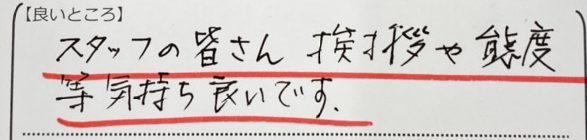 【良いところ】
スタッフの皆さん 挨拶や態度
等気持ち良いです.